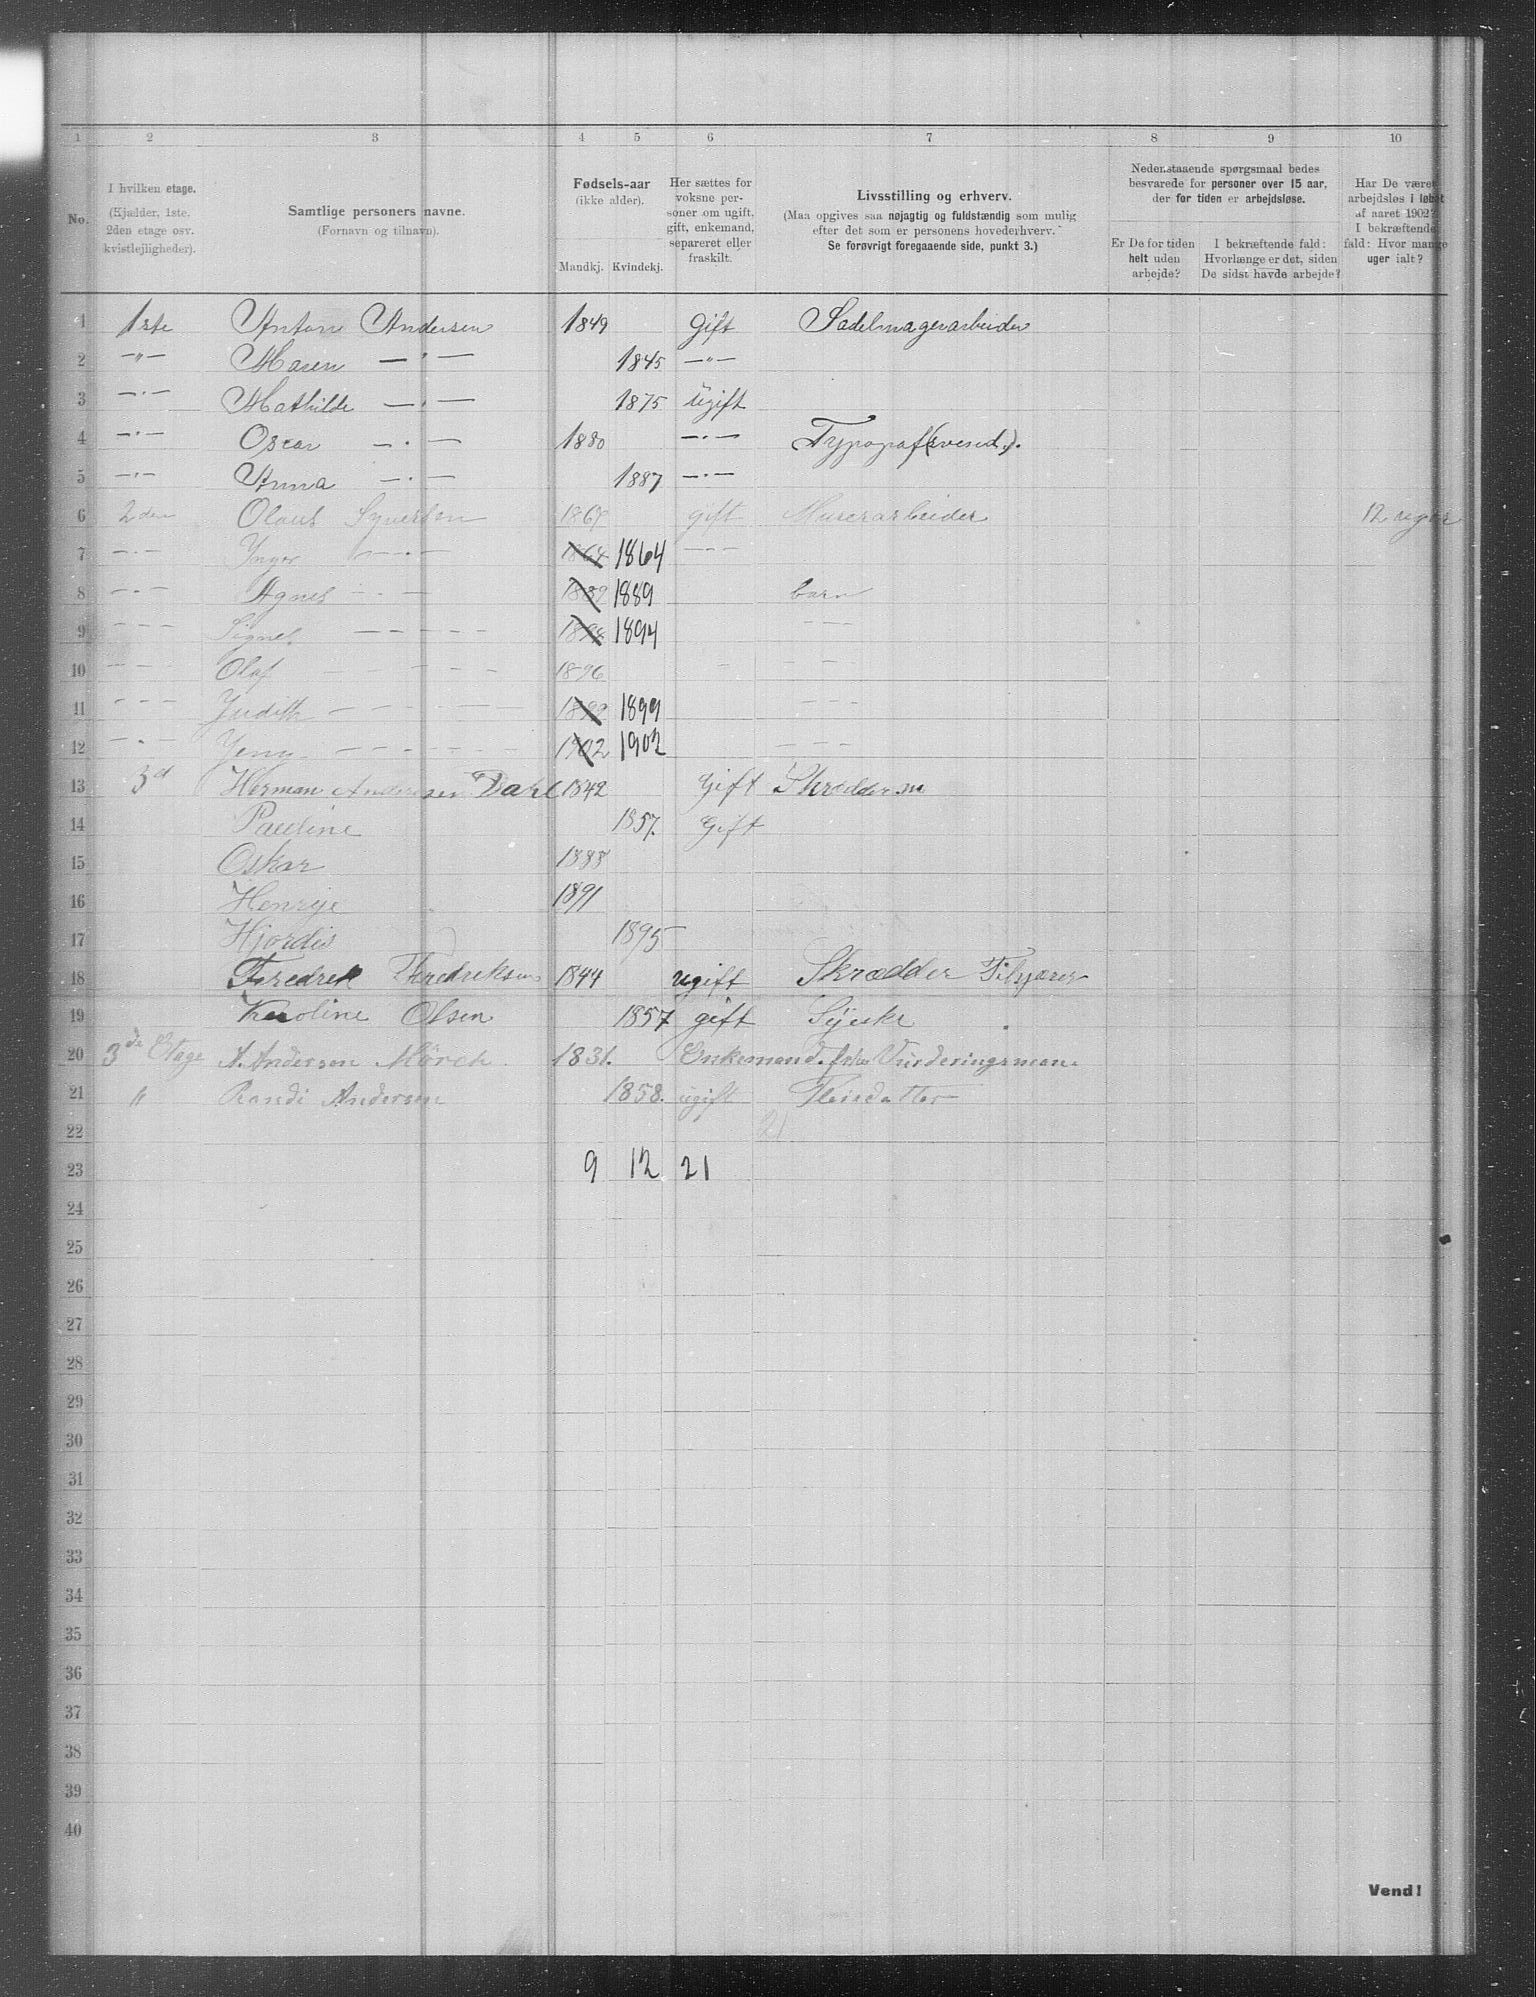 1 2 3 4 5 6 7 8 9 10
No.
I hvilken etage.
(Kjælder, 1ste.
2den etage osv.
kvistlejligheder).
Samtlige personers navne.
(Fornavn og tilnavn).
Fødsels-aar
(ikke alder).
Mandkj. Kvindekj.
Her sættes for
voksne per-
soner om ugift,
gift, enkemand,
separeret eller
fraskilt.
Livsstilling og erhverv.
(Maa opgives saa nøjagtig og fuldstændig som mulig
efter det som er personens hovederhverv.
Se forøvrigt foregaaende side, punkt 3.)
Nedenstaaende spørgsmaal bedes
besvarede for personer over 15 aar,
der for tiden er arbejdsløse.
Er De for tiden
helt uden
arbejde?
I bekræftende fald:
Hvorlænge er det, siden
De sidst havde arbejde?
Har De været
arbejdsløs i løbet
af aaret 1902?
I bekræftende
fald: Hvor mange
uger ialt?
1 1ste Anton Andersen 1849 Gift Sadelmagerarbeider
2 —"— Maren —"— 1845 —"—
3 —"— Mathilde —"— 1875 ugift
4 —"— Oscar —"— 1880 —"— Typograf (svend).
5 —"— Anna —"— 1887 —"—
6 2den Olaus Syversen 186 gift Murerarbeider 12 uger
7 —"— Inger —"— 1864 1864 — — —
8 —"— Agnes —"— 1889 1889 barn
9 — — — Signe — — — 1894 1894 — — —
10 — — — Olaf — — — 1896 — — —
11 — — — Judith — — — 1899 1899 — — —
12 —"— Jenny — — — 1902 1902 — — —
13 3d Herman Andersen Dahl 1842 Gift Skrædder m
14 Pauline 1857. Gift
15 Oskar 1888
16 Henrye 1891
17 Hjordis 1895
18 Fredrek Fredreksen 1844 ugift Skrædder Tilskjærer
19 Karoline Olsen 1857 gift Syerske
20 3de Etage A. Andersen Mörch 1831. Enkemand. fhv Vurderingsmand.
21 " Randi Andersen 1858. ugift Pleiedatter
22 21
23 9 12 21
24
25
26
27
28
29
30
31
32
33
34
35
36
37
38
39
40
Vend!